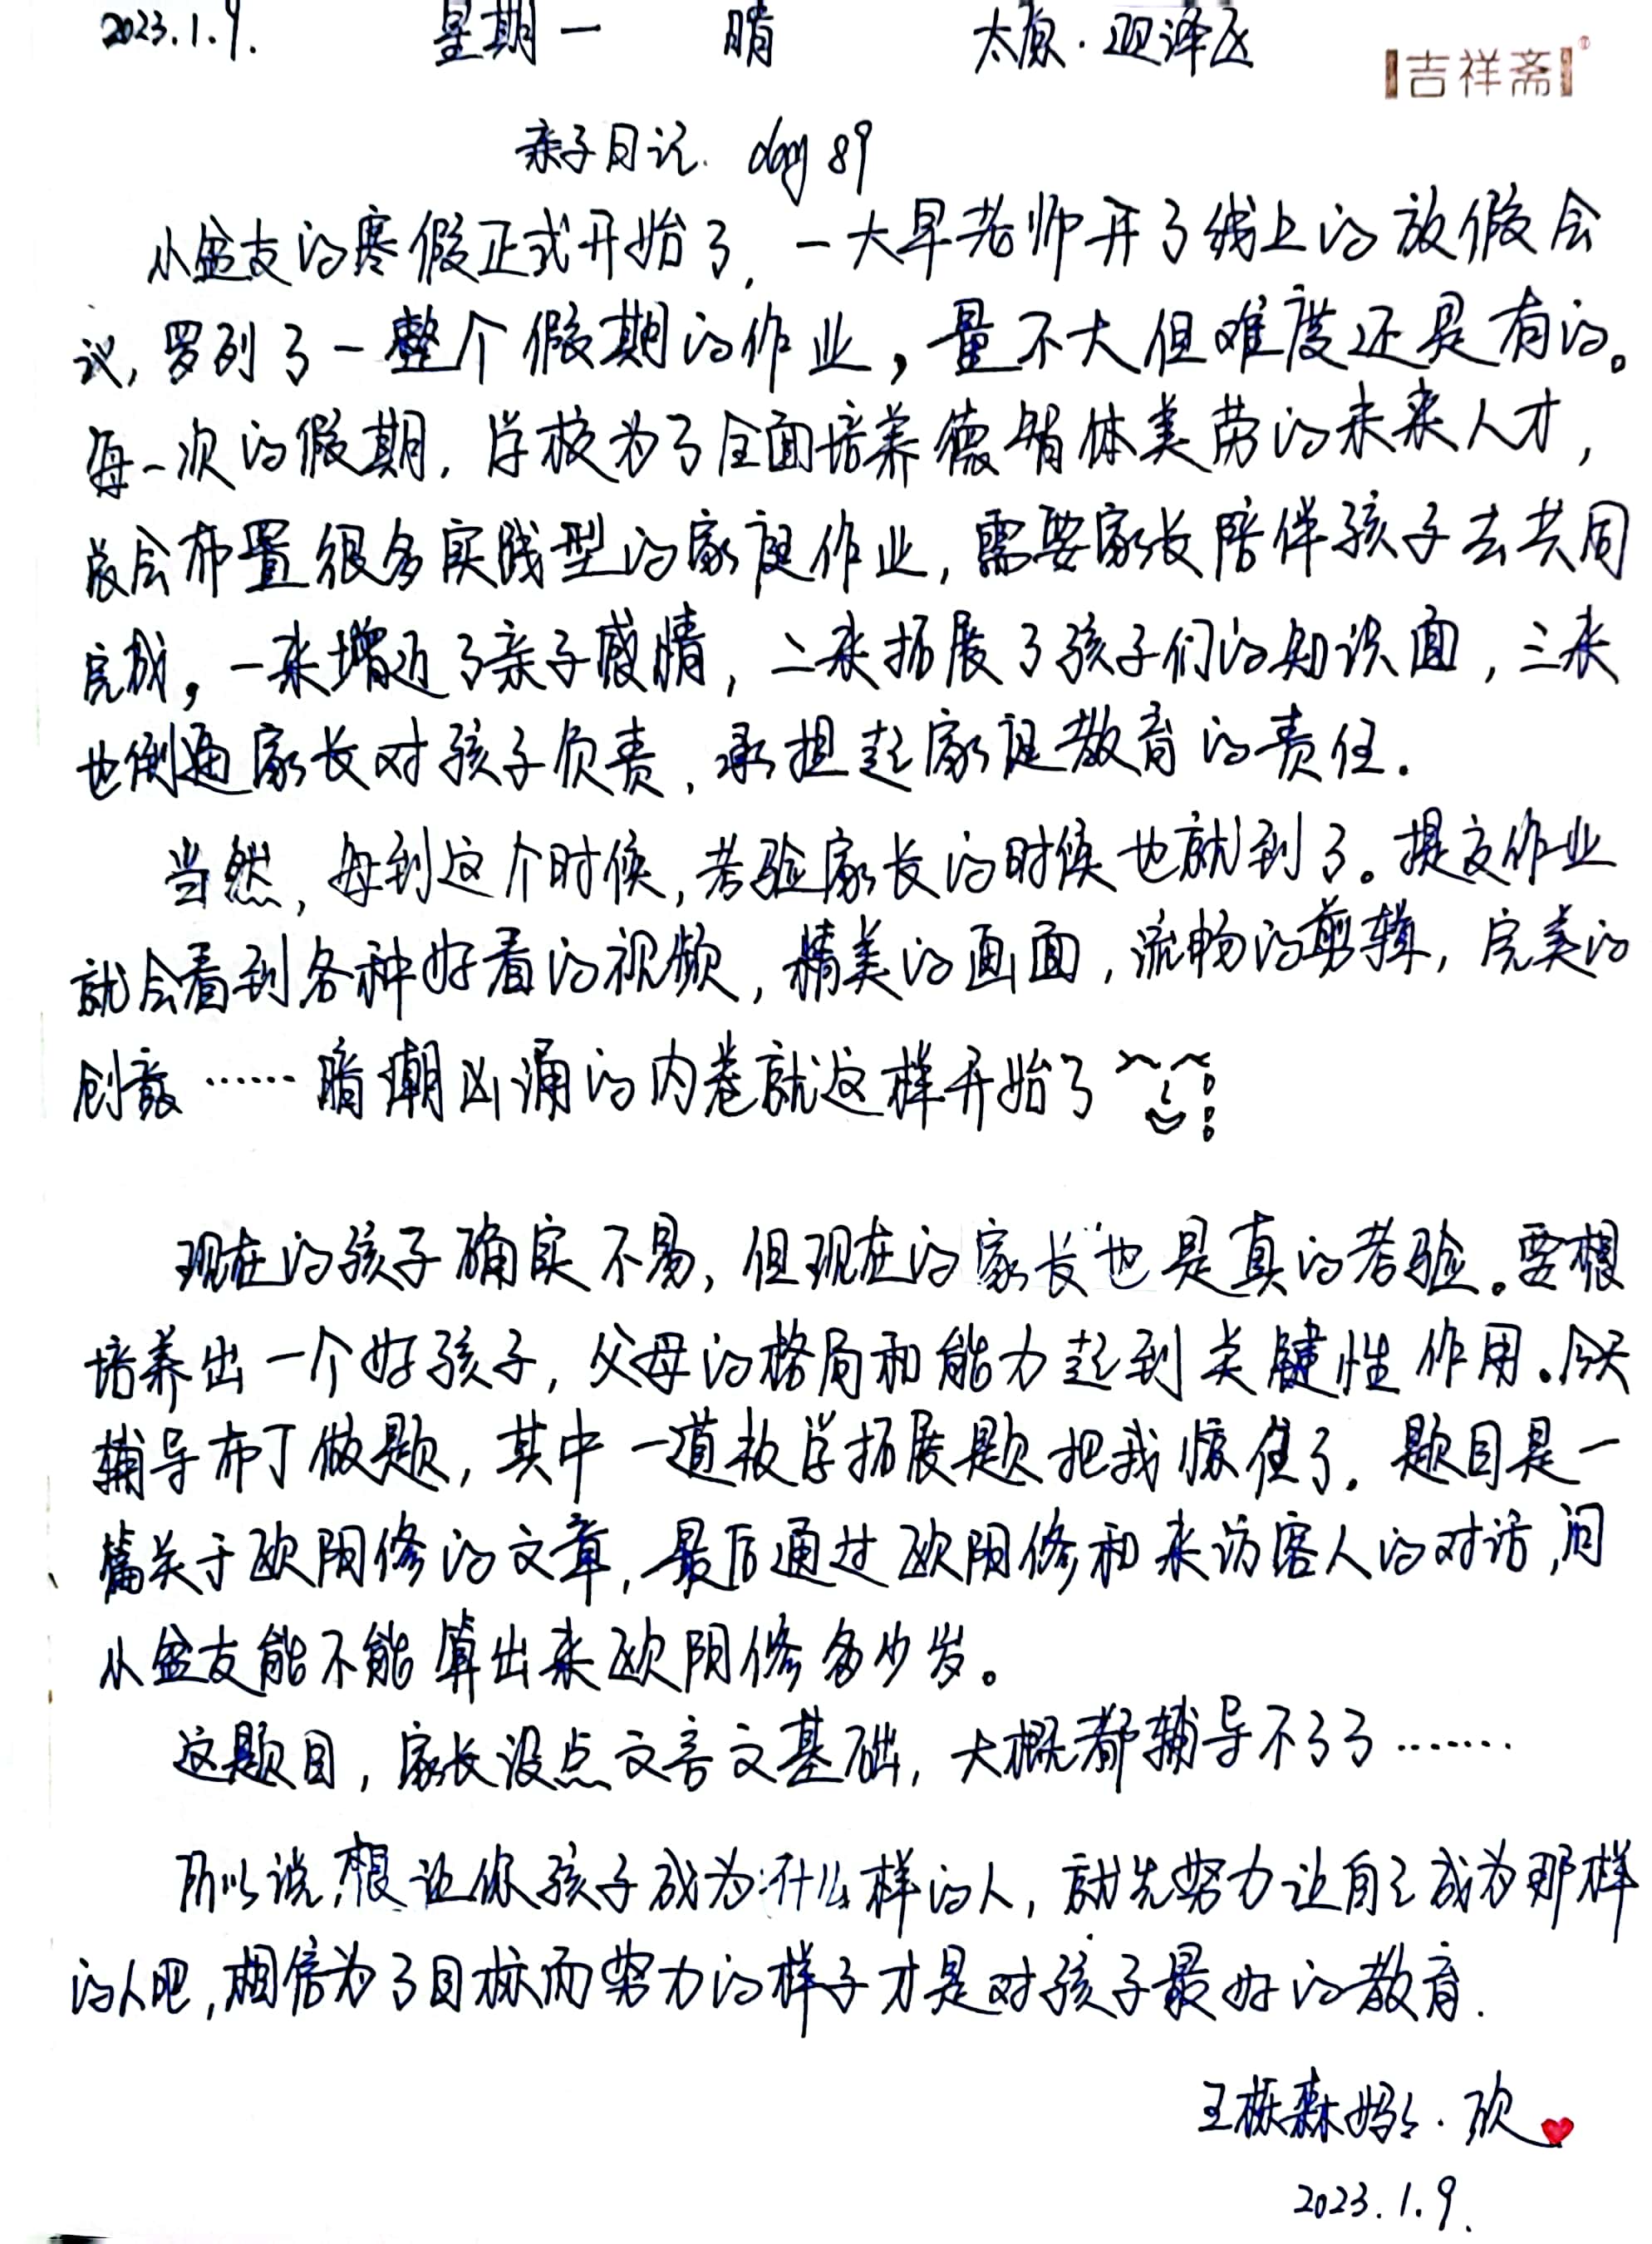 2023.1.9. 星期一 晴 太原·迎泽区
吉祥斋
亲子日记. day 89
小盆友的寒假正式开始了,一大早老师开了线上的放假会
议,罗列了一整个假期的作业,量不大但难度还是有的。
每一次的假期,学校为了全面培养德智体美劳的未来人才,
总会布置很多实践型的家庭作业,需要家长陪伴孩子去共同
完成,一来增近了亲子感情,二来拓展了孩子们的知识面,三来
也倒逼家长对孩子负责,承担起家庭教育的责任.
当然,每到这个时候,考验家长的时候也就到了。提交作业
就会看到各种好看的视频,精美的画面,流畅的剪辑,完美的
创意……暗潮凶涌的内卷就这样开始了
现在的孩子确实不易,但现在的家长也是真的考验。要想
培养出一个好孩子,父母的格局和能力起到关键性作用.今天
辅导布丁做题,其中一道数学拓展题把我惊住了.题目是一
篇关于欧阳修的文章,最后通过欧阳修和来访客人的对话,问
小盆友能不能算出来欧阳修多少岁。
这题目,家长没点文言文基础,大概都辅导不了了……
所以说,想让你孩子成为什么样的人,就先努力让自己成为那样
的人吧,相信为了目标而努力的样子才是对孩子最好的教育.
王栎森妈妈·欣
2023.1.9.